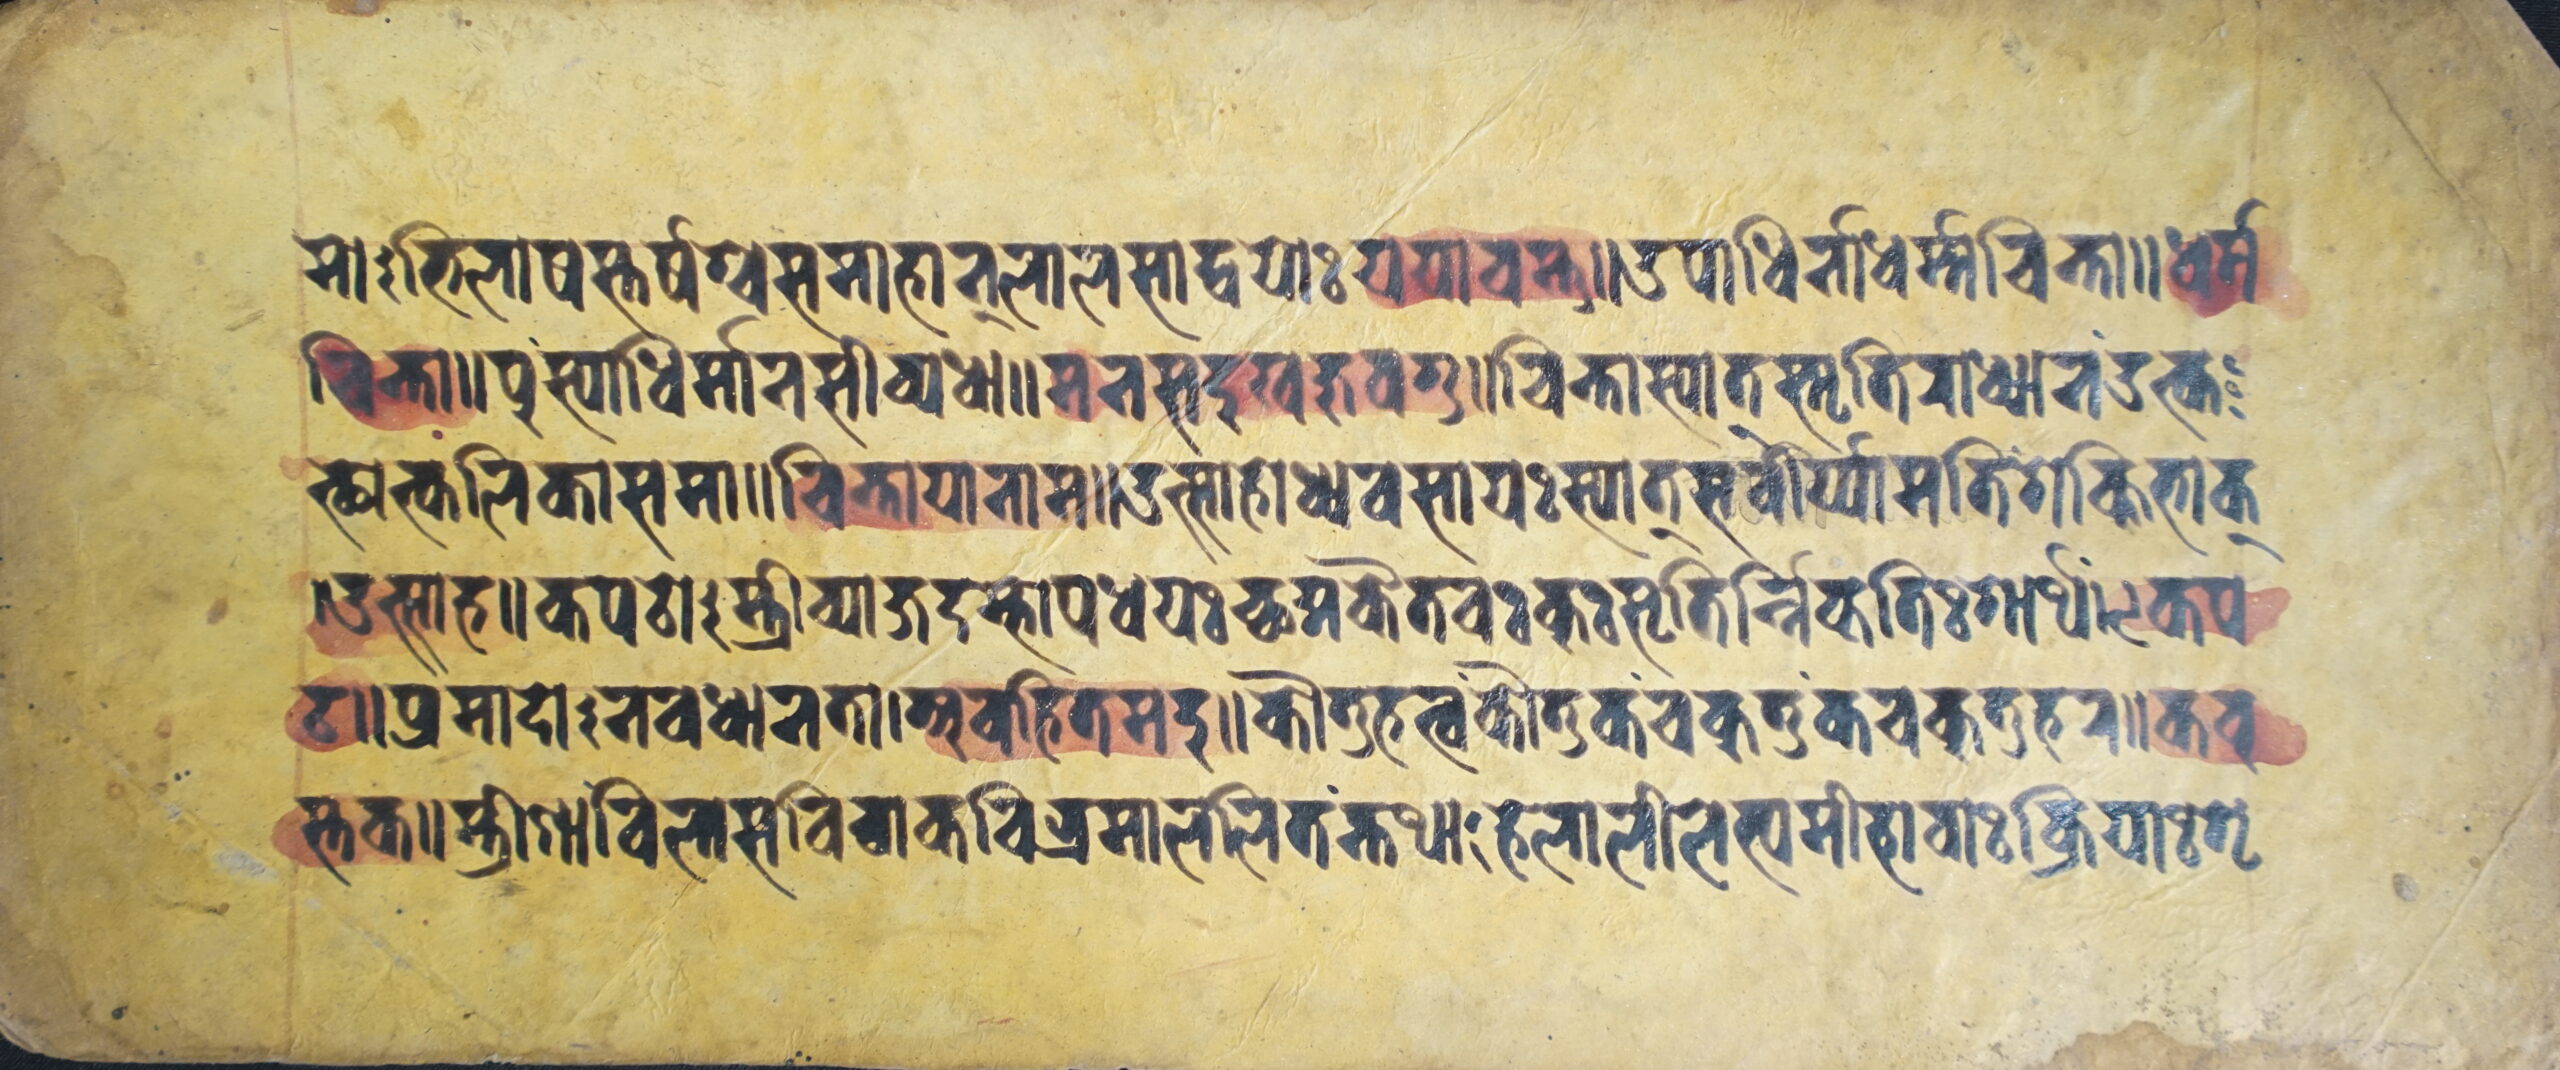 मोऽभिलाषस्तर्षश्चसमाहान्लालसाद्वयोः ययावमृ॥उपाधिर्नाधर्म्मचिन्ता॥धर्म
चिन्ता॥पुंस्याधिर्मानसीव्यथा॥मनसदुखजुवगु॥चिन्तास्यात्स्मृतिराध्यानंउत्कः
ण्ठोत्कलिकासमा॥चिन्तायानाम॥उत्साहोध्यवसायःस्यात्सवीर्य्यामतिशक्तिभाक्
।उत्साह॥कपटोऽस्त्रीव्याजदम्भोपधयःछद्मकैतवःकुःसृतिर्न्निकृतिःशार्थं।९कप
ट॥प्रमादोऽनवधानता।अवहितमदु॥कौतुहल्वंकौतुकंचकुतुंकचकुतुहर॥कवु
स्तक॥स्त्रीणांविलासविबोकविभ्रमाललितंतथाःहेलालीलेत्यमीहावाःक्रियाःशृ